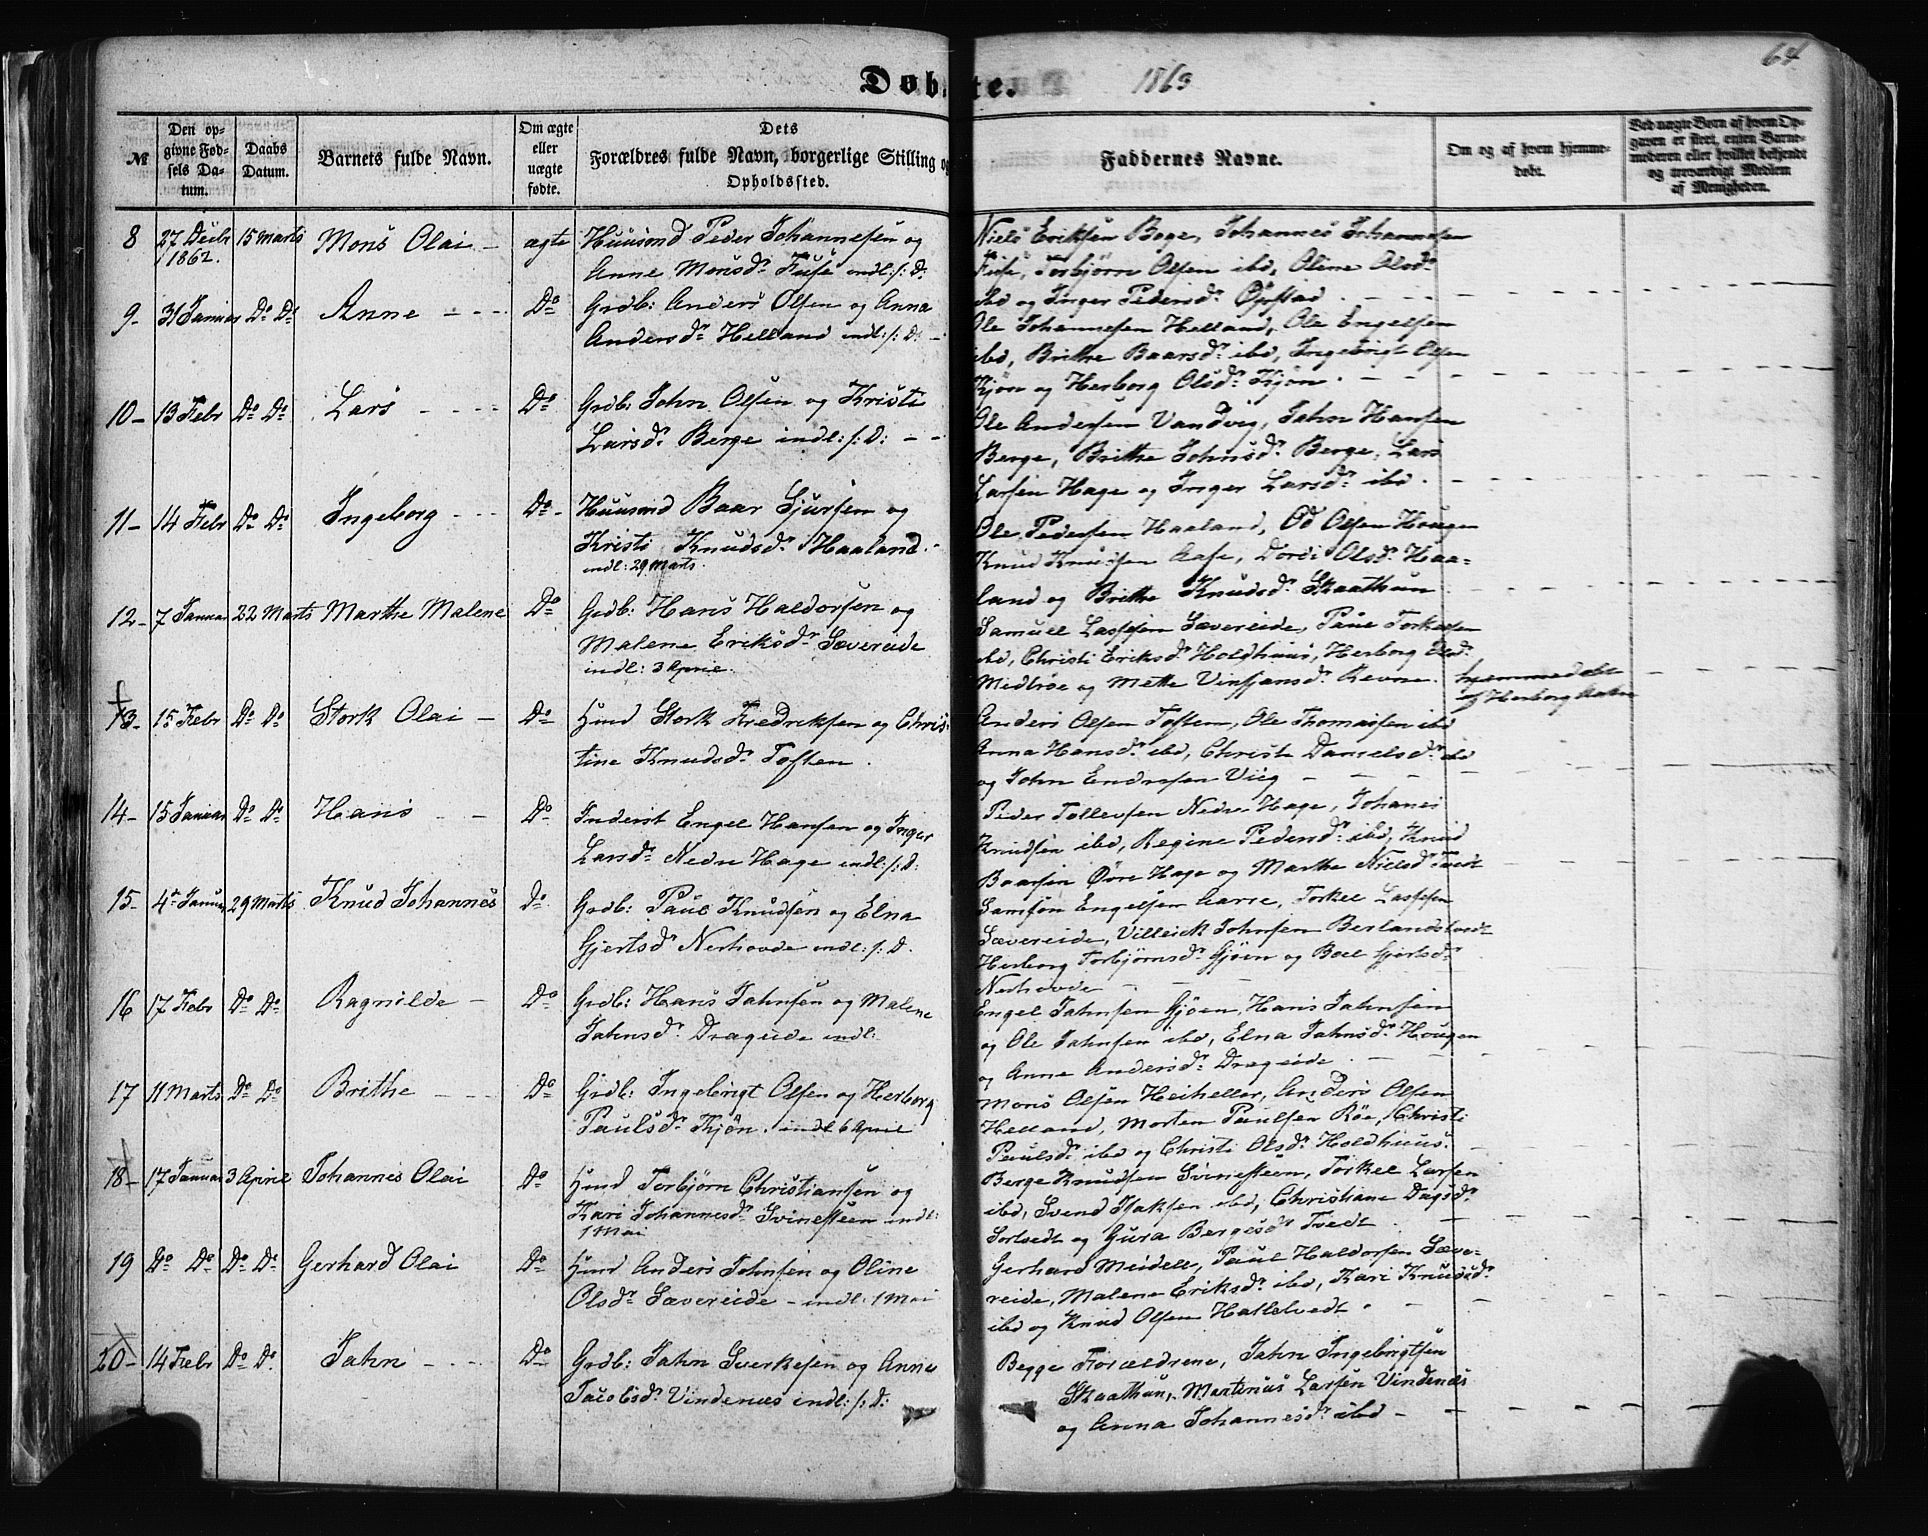 Døbte. 1863
64
№
Den opgivne Fødsels Datum.
Daabs Datum.
Barnets fulde Navn.
Om ægte eller uægte fødte.
Dets
Forældres fulde Navn, borgerlige Stilling og
Opholdssted.
Faddernes Navne.
Om og af hvem hjemmedøbt.
Ved uægte Børn af hvem Opgaven er skeet, enten Barnemoderen eller hvilket bekjendt og troværdigt Medlem af Menigheden.
8 27 Decbr 1862. 15 Marts Mons Olai – ægte
Huusmd Peder Johannesen og
Anne Monsdr Fuse indl: s: D:
Niels Eriksen Boge, Johannes Johannesen
Fuse, Torbjørn Olsen ibd, Oline Olsdr
ibd og Inger Pedersdr Opstad
9- 31 Januar Do Do Anne Do
Grdb: Anders Olsen og Anna
Andersdr Helland indl: s: D: –
Ole Johannesen Helland, Ole Engelsen
ibd, Brithe Baarsdr ibd, Ingebrigt Olsen
Kjøn og Herborg Olsdr Kjøn.
10- 13 Febr Do Do Lars Do
Grdb: John Olsen og Kristi
Larsdr Berge indl: s: D:
Ole Andersen Vandvig, John Hansen
Berge, Brithe Johnsdr Berge, Lars
Larsen Hage og Inger Larsdr ibd.
11- 14 Febr Do Do Ingeborg Do
Huusmd Baar Sjursen og
Kristi Knudsdr Haaland.
indl: 29 Marts.
Ole Pedersen Haaland, Od Olsen Hougen
Knud Knudsen Aase, Dordi Olsdr Haa=
land og Brithe Knudsdr Skaathun
12- 7 Januar 22 Marts Marthe Malene Do
Grdb: Hans Haldorsen og
Malene Eriksdr Sævereide
indl: 3 Aprie.
Samuel Lassesen Sævereide, Paul Torkelsen
ibd, Christi Eriksdr Holdhuus, Herborg Olsdr
Midtrøe og Mette Vinsjansdr Revne.
13- 15 Febr Do Do Stork Olai – Do
Hmd Stork Fredriksen og Chris=
tine Knudsdr Toften.
Anders Olsen Toften, Ole Thomassen ibd
Anna Hansdr ibd, Christi Danielsdr ibd
og John Endresen Viig
hjemmedøbt
af Herborg
14- 15 Januar Do Do Hans Do
Inderst Engel Hansen og Inger
Larsdr Nedre Hage indl: s: D:
Peder Tollevsen Nedre Hage, Johanes
Knudsen ibd, Regine Pedersdr ibd, Knud
Baarsen Øvre Hage og Marthe Nielsdr Tvedt
15- 4de Januar 29 Marts Knud Johannes Do
Grdb: Paul Knudsen og Elna
Gjertsdr Nerhovde indl: s: D.
Samson Engelsen Aarre, Torkel Lassesen
Sævereide, Villeick Johnsen Berlandstvedt
Herborg Torbjørnsdr Gjøen og Boel Gjertsdr
Nerhovde
16 17 Febr Do Do Ragnilde – Do
Grdb: Hans Jahnsen og Malene
Jahnsdr Drageide indl:
Engel Jahnsen Gjøen, Hans Jahnsen
og Ole Jahnsen ibd, Elna Jahnsdr Hougen
og Anne Andersdr Drageide
17 11 Marts Do Do Brithe Do
Grdb: Ingebrigt Olsen og Herborg
Paulsdr Kjøn. indl 6 Aprie
Mons Olsen Heiheller, Anders Olsen
Helland, Morten Paulsen Røe, Christi
Paulsdr ibd og Christi Olsdr Holdhuus.
18- 17 Januar 3 Aprie Johannes Olai Do
Hmd Torbjørn Christiansen og
Kari Johannesdr Svinesteen indl:
1 Mai
Berge Knudsen Svinesteen, Torkel Larsen
ibd, Svend Isaksen ibd, Christiane Dagsdr
Sortvedt og Gura Bergesdr Tvedt
19 Do Do Do Do Gerhard Olai Do
Hmd Anders Johnsen og Oline
Olsdr Sævereide – indl: 1 Mai
Gerhard Meidell, Paul Haldorsen Sæve=
reide, Malene Eriksdr ibd, Kari Knudsdr
ibd og Knud Olsen Hatletvedt
20- 14 Febr Do Do Jahn Do
Grdb: Jahn Sverkesen og Anne
Jacobsdr Vindenæs indl: s: D:
Begge Forældrene, Jahn Ingebrigtsen
Skaathun, Martinus Larsen Vindenæs
og Anna Johannesdr ibd